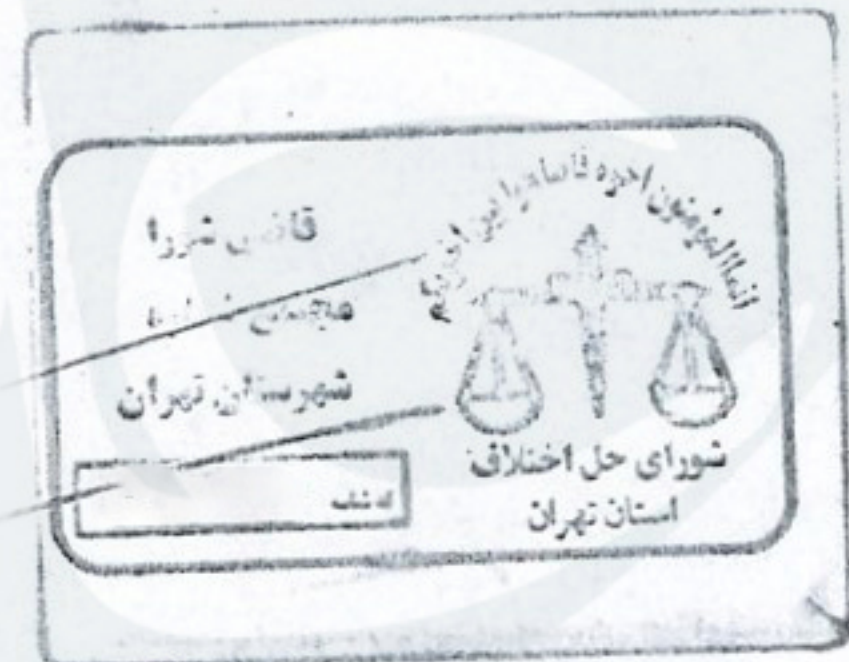 انما المومنون اخوه فاصلحوا بین اخویکم
شورای حل اختلاف
استان تهران
قاضی شورا
مجتمع شماره
شهرستان تهران
کد شعبه